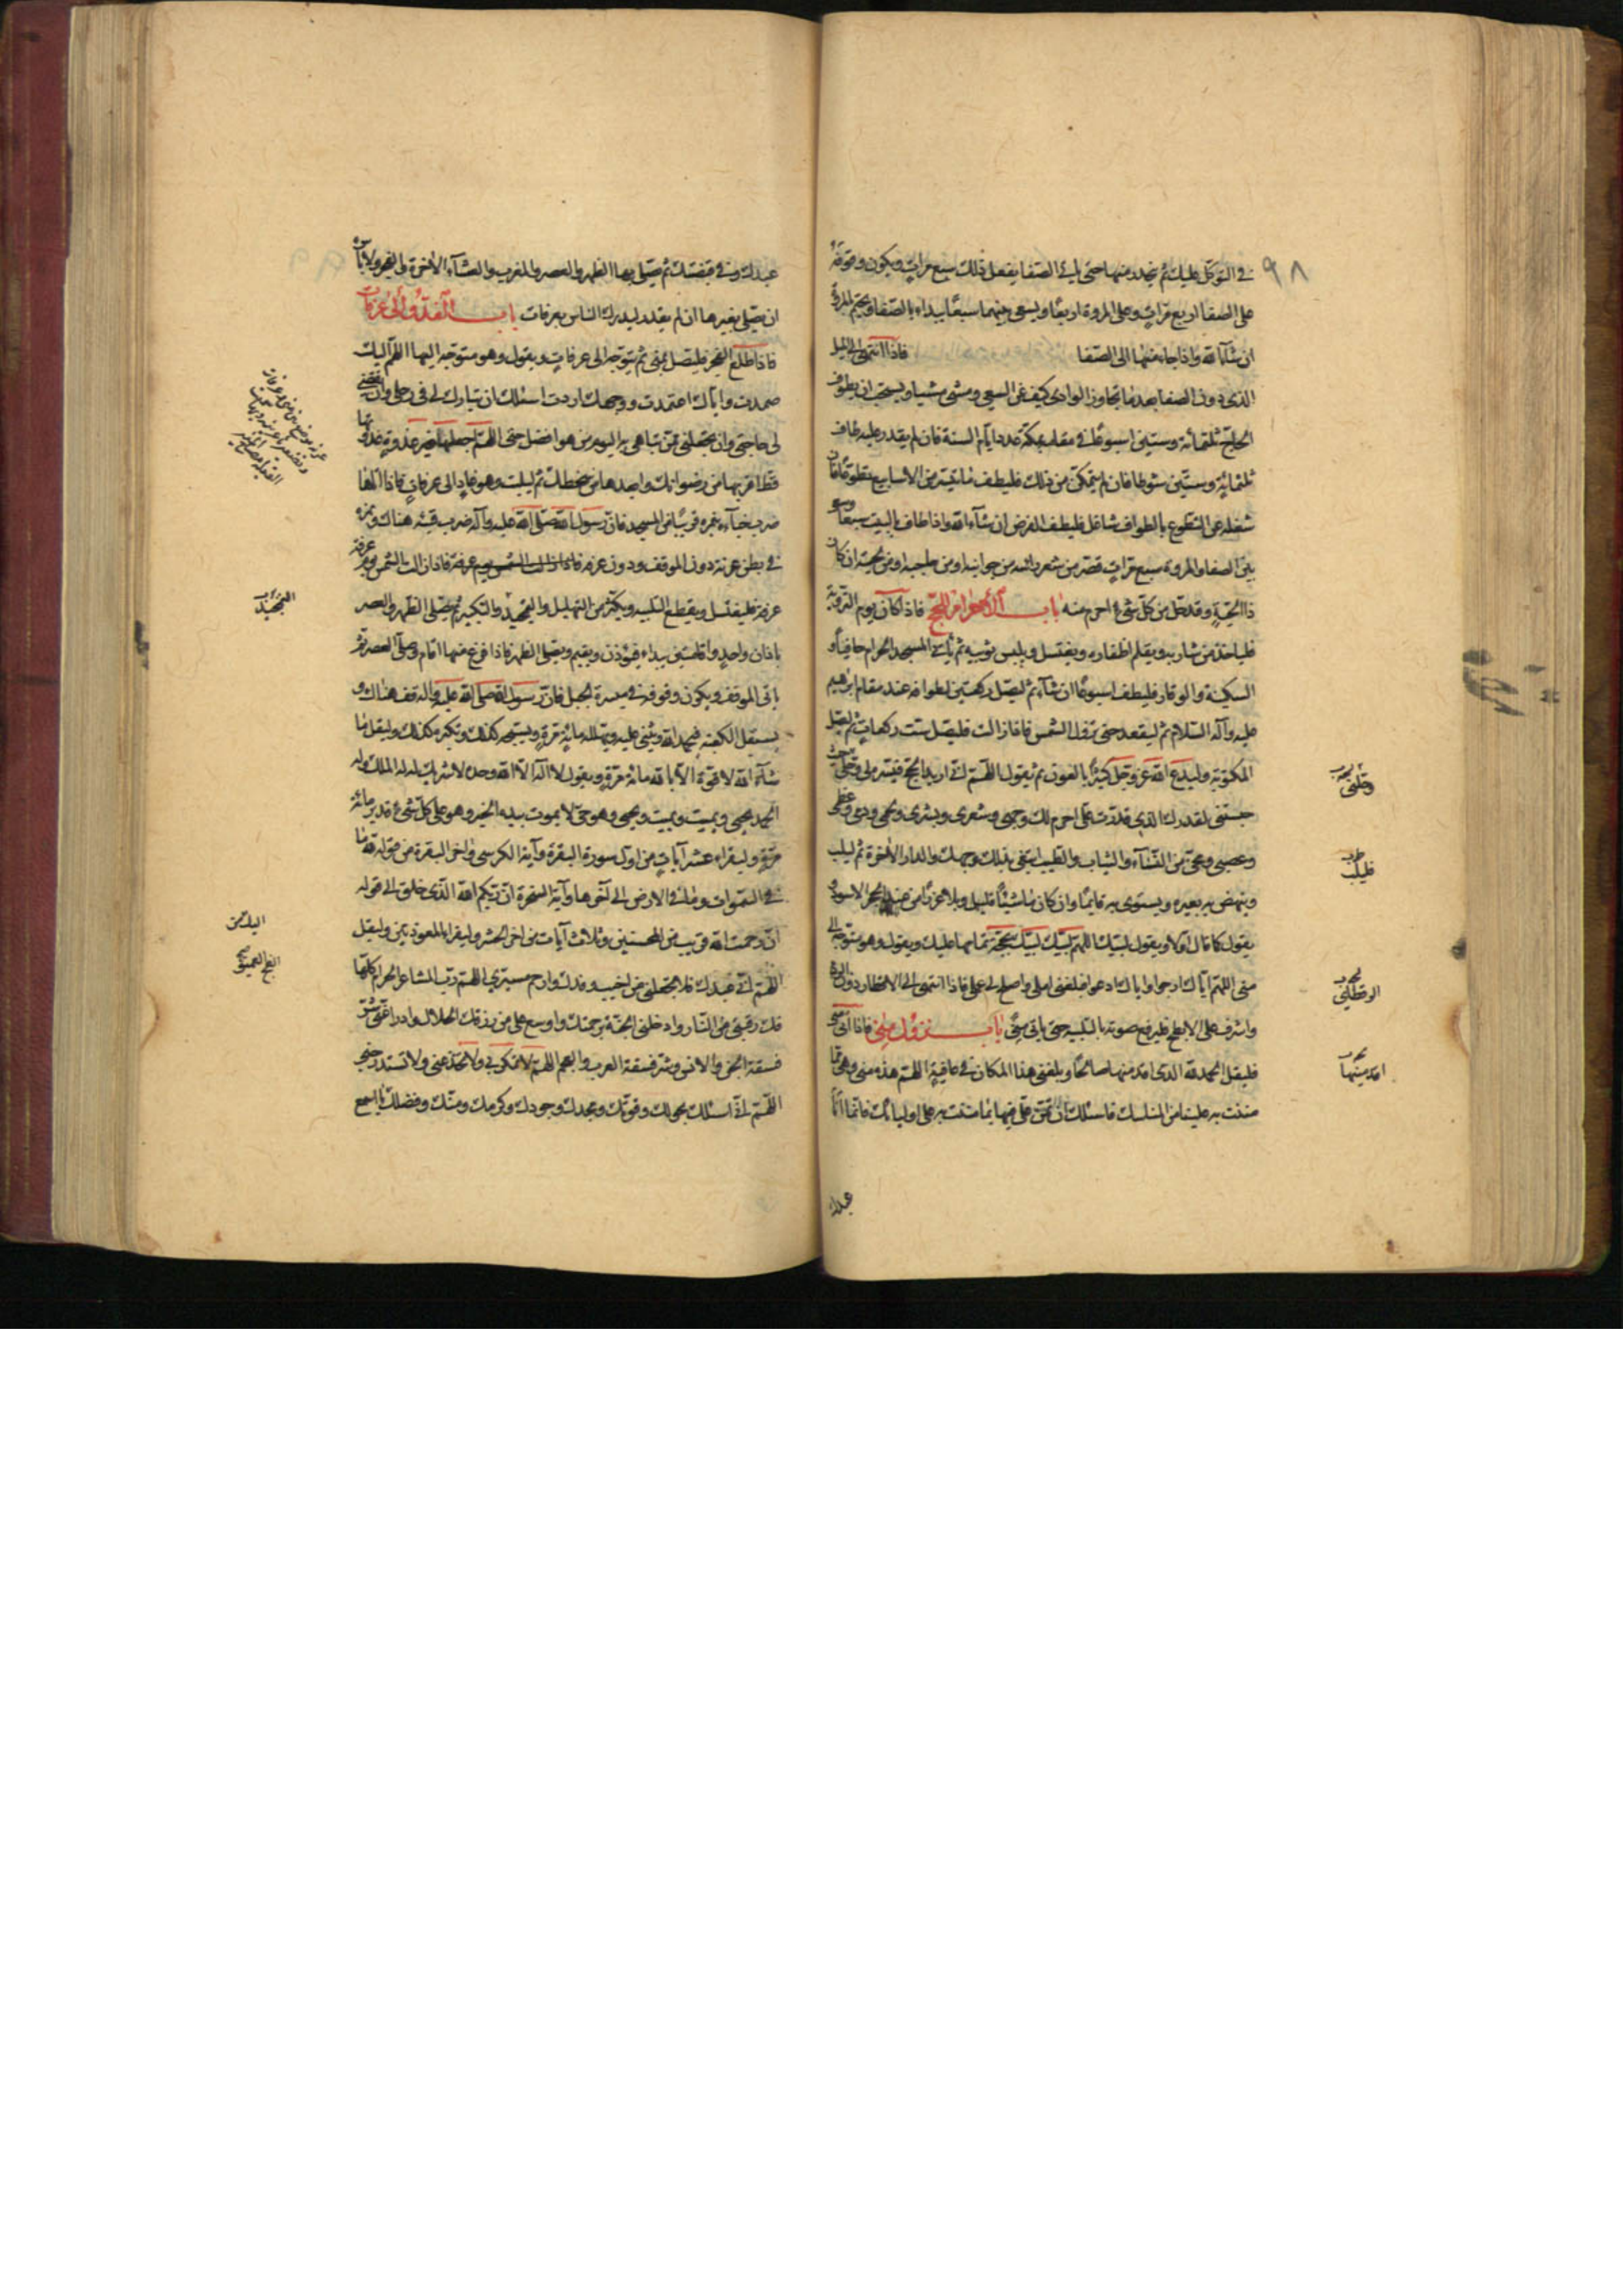 ٩٨
في التوكل عليك ثم ينحدر منها حتى يأتي الصفا يفعل ذلك سبع مرات ويكون وقوفه
على الصفا اربع مرات وعلى المروة اربعًا ويسعى بينهما سبعًا يبداء بالصفا ويختم بالمروة
ان شاء الله واذا جاء منهما الى الصفا فاذا انتهى الى الميل
الذي دون الصفا بعد ما يتجاوز الوادي كيف عن السعي ومشى مشيا ويستحب ان يطوف
الحاج ثلثمائة وستين اسبوعًا في مقامه بمكة عدد ايام السنة فان لم يقدر عليه طاف
ثلثمائة وستين شوطا فان لم يتمكن من ذلك فليطف ما تيسر من الاسابيع تطوعًا فان
شغله عن التطوع بالطواف شاغل فليطف الفرض ان شآء الله واذا طاف بالبيت سبعا وسعى
بين الصفا والمروة سبع مرات قصر من شعر رأسه من جوانبه او من حاجبه او من لحيته ان كان
ذا لحية وقد حل من كل شيء احرم منه باب الاحرام للحج فاذا كان يوم التروية
فلياخذ من شاربه ويقلم اظفاره ويغتسل ويلبس ثوبيه ثم يأتي المسجد الحرام حافيًا و
السكينة والوقار فليطف اسبوعًا ان شآء ثم ليصل ركعتين لطوافه عند مقام ابرهيم
عليه وآله السلام ثم ليقعد حتى تزول الشمس فاذا زالت فليصل ست ركعات ثم ليصل
المكتوبة وليدع الله عز وجل كثيرًا بالعون ثم يقول اللهم اني اريد الحج فيسره لي وحلني حيث
حبستني لقدرك الذي قدرت علي احرم لك وجهي وشعري وبشري ولحمي ودمي وعظمي
وعصبي ومخي من النسآء والثياب والطيب ابتغي بذلك وجهك والدار الآخرة ثم ليلب
وينهض به بعيره ويستوي به قايمًا وان كان ماشيًا فليلب من عند الحجر الاسود
يقول كما قال اولا ويقول لبيك اللهم لبيك لبيك بحجة تمامها عليك ويقول وهو متوجه الى
منى اللهم اياك ارجوا واياك ادعوا فبلغني املي واصلح لي عملي فاذا انتهى الى الاقطار دون الردم
واشرف على الابطح فليرفع صوته بالتلبيه حتى ياتي منى باب نزول منى فاذا اتى منى
فليقل الحمد لله الذي اقدمنيها صالحًا وبلغني هذا المكان في عافية اللهم هذه منى وهي مما
مننت به علينا من المناسك فاسئلك ان تمن علي فيها بما مننت به على اوليائك فانما انا
وحلني
فليلب
امدمنيها
عبدك
عبدك وفي قبضتك ثم يصلي بها الظهر والعصر والمغرب والعشآء الآخرة والفجر ولا بأس
ان يصلي بغيرها ان لم يقدر ليدرك الناس بعرفات باب الغدو الى عرفات
فاذا طلع الفجر فليصل بمنى ثم يتوجه الى عرفات ويقول وهو متوجه اليها اللهم اليك
صمدت واياك اعتمدت ووجهك اردت اسئلك ان تبارك لي في رحلي وان تقضي
لي حاجتي وان تجعلني ممن تباهي به اليوم من هو افضل مني اللهم اجعلها خير غدوة غدوتها
قط اقربها من رضوانك وابعدها من سخطك ثم ليلب وهو غاد الى عرفات فاذا اتاها
ضرب خبآءه بنمرة قريبًا من المسجد فان رسول الله صلى الله عليه وآله ضرب قبته هناك ونمرة
في بطن عرنة دون الموقف ودون عرفه فاذا زالت الشمس يوم عرفة
عرفة فليغتسل ويقطع التلبيه ويكثر من التهليل والتمجيد والتكبير ثم يصلي الظهر والعصر
باذان واحد واقامتين يبداء فيؤذن ويقيم ويصلي الظهر فاذا فرغ منها اقام وصلى العصر ثم
ياتي الموقف ويكون وقوفه في ميسرة الجبل فان رسول الله صلى الله عليه وآله وقف هناك و
يستقبل الكعبة فيحمد الله ويثني عليه ويهلله مائة مرة ويسبحه كذلك ويكبره كذلك وليقل ما
شآء الله لا قوة الا بالله مائة مرة ويقول لا اله الا الله وحده لا شريك له له الملك وله
الحمد يحيي ويميت ويميت ويحيي وهو حي لا يموت بيده الخير وهو على كل شيء قدير مائة
مرة وليقراء عشر آيات من اول سورة البقرة وآية الكرسي وآخر البقرة من قوله لله ما
في السموات وما في الارض الى آخرها وآية السخرة ان ربكم الله الذي خلق الى قوله
ان رحمت الله قريب من المحسنين وثلاث آيات من اخر الحشر وليقراء المعوذتين وليقل
اللهم اني عبدك فلا تجعلني من اخيب وفدك وارحم مسيري اللهم رب المشاعر الحرام كلها
فك رقبتي من النار وادخلني الجنة برحمتك واوسع علي من رزقك الحلال وادراء عني شر
فسقة الجن والانس وشر فسقة العرب والعجم اللهم لا تمكر بي ولا تخدعني ولا تستدرجني
اللهم اني اسئلك بحولك وقوتك ومجدك وجودك وكرمك ومنك وفضلك يا اسمع
الفج العميق